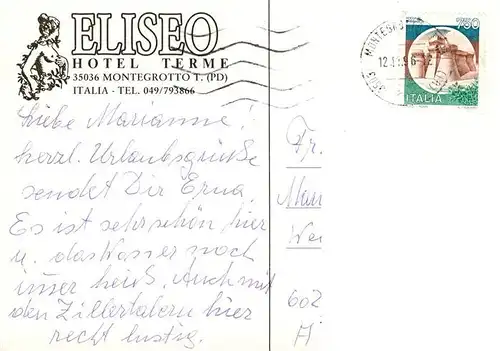 ELISEO
HOTEL TERME
35036 MONTEGROTTO T. (PD)
ITALIA - TEL. 049/793866
Liebe Marianne!
herzl. Urlaubsgrüße
sendet Dir Erna.
Es ist sehr schön hier
u. das Wasser noch
immer heiß. Auch mit
den Zillertalern hier
recht lustig.
750
ITALIA
MONTEGRO
12
Fr.
Mar
We
602
A